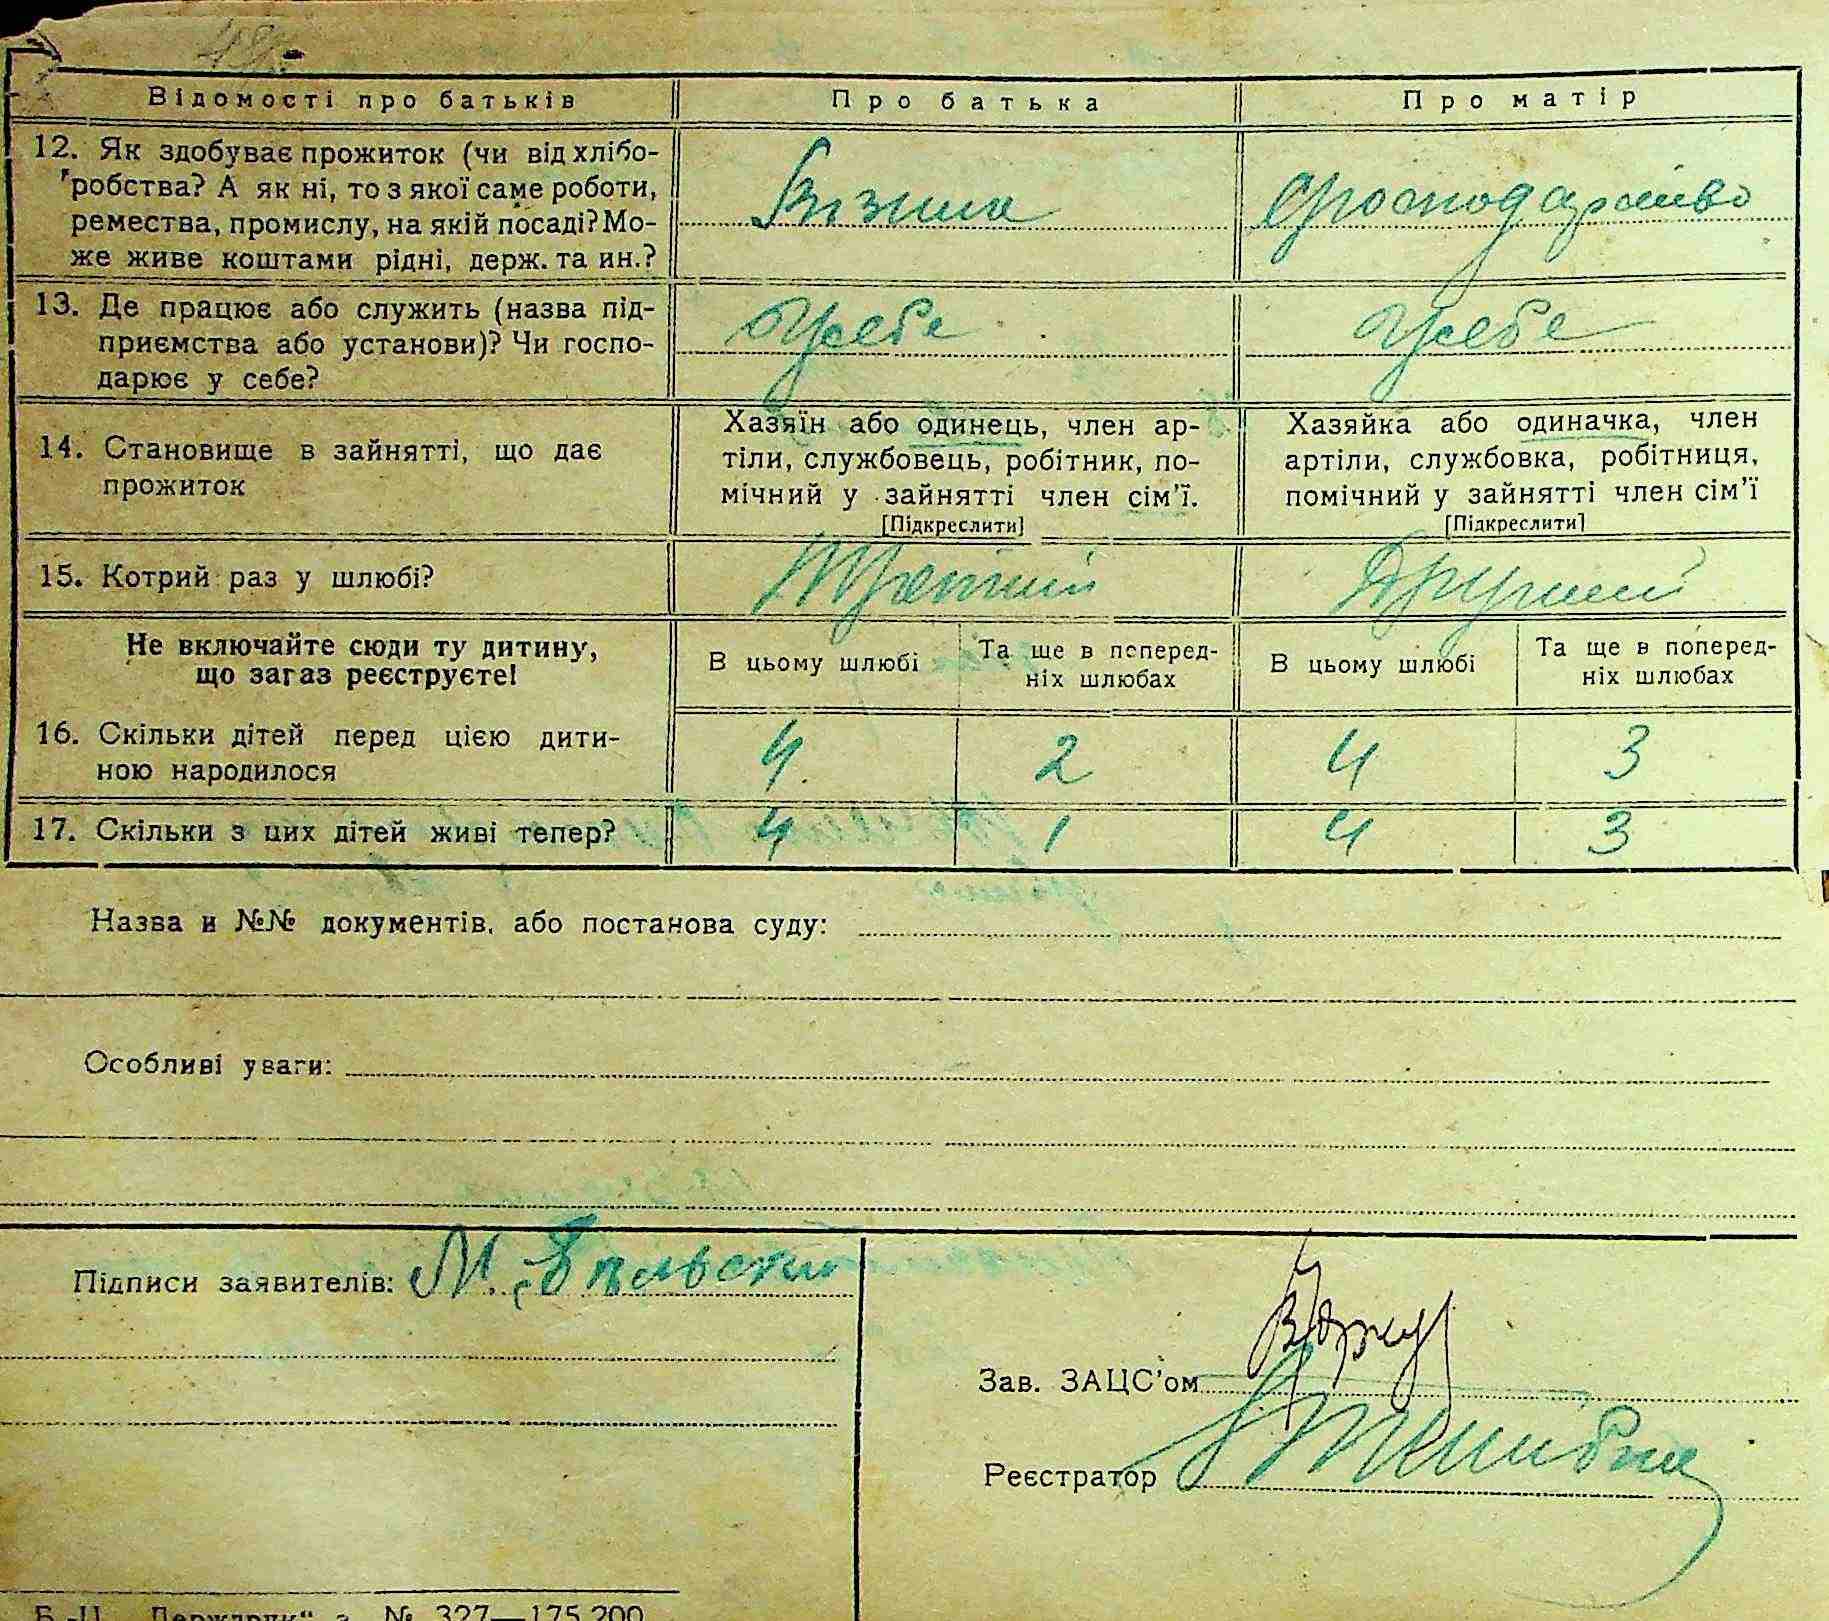 Відомості про батьків
Про батька
Про матір
12. Як здобуває прожиток (чи від хлібо-
робства? А як ні, то з якої саме роботи,
ремества, промислу, на якій посаді? Мо-
же живе коштами рідні, держ. та ин.?
Візник
Господарство
13. Де працює або служить (назва під-
приємства або установи)? Чи госпо-
дарює у себе?
У себе
У себе
14. Становище в зайнятті, що дає
прожиток
Хазяїн або одинець, член ар-
тіли, службовець, робітник, по-
мічний у зайнятті член сім'ї.
[Підкреслити]
Хазяйка або одиначка, член
артіли, службовка, робітниця,
помічний у зайнятті член сім'ї
[Підкреслити]
15. Котрий раз у шлюбі?
Третій
Другий
Не включайте сюди ту дитину,
що загаз реєструєте!
В цьому шлюбі
Та ще в поперед-
ніх шлюбах
В цьому шлюбі
Та ще в поперед-
ніх шлюбах
16. Скільки дітей перед цією дити-
ною народилося
4 2 4 3
17. Скільки з цих дітей живі тепер?
4 1 4 3
Назва и №№ документів, або постанова суду:
Особливі уваги:
Підписи заявителів: М. Бельский
Зав. ЗАЦС'ом
Реєстратор
№ 327—175.200